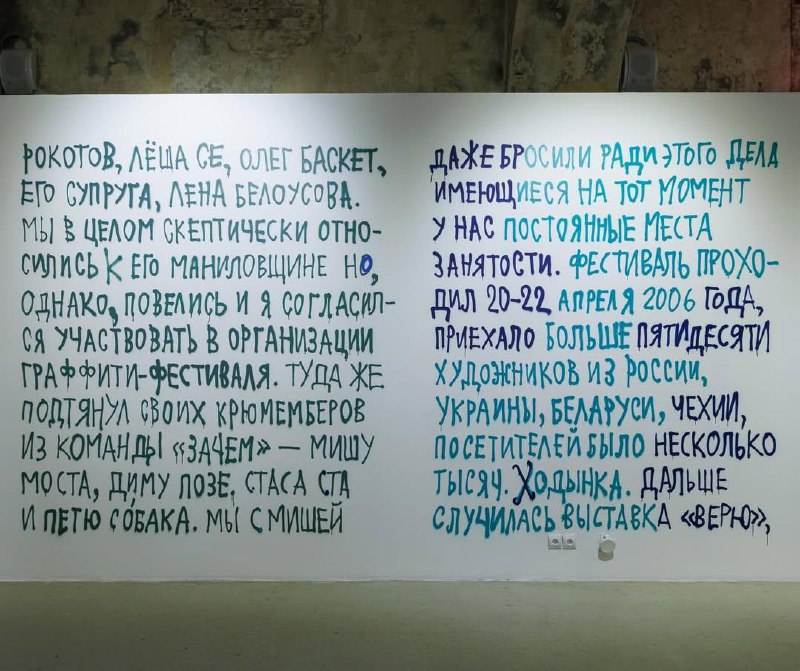 РОКОТОВ, ЛЁША СЕ, ОЛЕГ БАСКЕТ,
ЕГО СУПРУГА, ЛЕНА БЕЛОУСОВА.
МЫ В ЦЕЛОМ СКЕПТИЧЕСКИ ОТНО-
СИЛИСЬ К ЕГО МАНИЛОВЩИНЕ НО,
ОДНАКО, ПОВЕЛИСЬ И Я СОГЛАСИЛ-
СЯ УЧАСТВОВАТЬ В ОРГАНИЗАЦИИ
ГРАФФИТИ-ФЕСТИВАЛЯ. ТУДА ЖЕ
ПОДТЯНУЛ СВОИХ КРЮМЕМБЕРОВ
ИЗ КОМАНДЫ «ЗАЧЕМ» — МИШУ
МОСТА, ДИМУ ПОЗЕ, СТАСА СТА
И ПЕТЮ СОБАКА. МЫ С МИШЕЙ
ДАЖЕ БРОСИЛИ РАДИ ЭТОГО ДЕЛА
ИМЕЮЩИЕСЯ НА ТОТ МОМЕНТ
У НАС ПОСТОЯННЫЕ МЕСТА
ЗАНЯТОСТИ. ФЕСТИВАЛЬ ПРОХО-
ДИЛ 20-22 АПРЕЛЯ 2006 ГОДА,
ПРИЕХАЛО БОЛЬШЕ ПЯТИДЕСЯТИ
ХУДОЖНИКОВ ИЗ РОССИИ,
УКРАИНЫ, БЕЛАРУСИ, ЧЕХИИ,
ПОСЕТИТЕЛЕЙ БЫЛО НЕСКОЛЬКО
ТЫСЯЧ. ХОДЫНКА. ДАЛЬШЕ
СЛУЧИЛАСЬ ВЫСТАВКА «ВЕРЮ»,